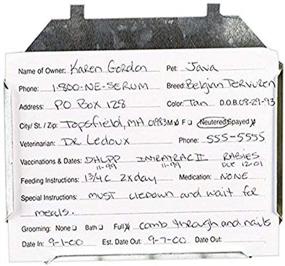 Name of Owner: Karen Gordon Pet: Java
Phone: 1-800-NE-SERUM Breed: Belgian Tervuren
Address: PO Box 128 Color: Tan D.O.B. 08-29-93
City/St./Zip: Topsfield, MA 01983 M F Neutered Spayed
Veterinarian: DR Ledoux Phone: 555-5555
Vaccinations & Dates: DHLPP 11-99 INTRATRAC II 11-99 RABIES DUE 12-01
Feeding Instructions: 1 3/4 C 2x day Medication: NONE
Special Instructions: MUST lie down and wait for
meals.
Grooming: None Bath Full comb through and nails
Date In: 9-1-00 Est. Date Out: 9-7-00 Date Out: